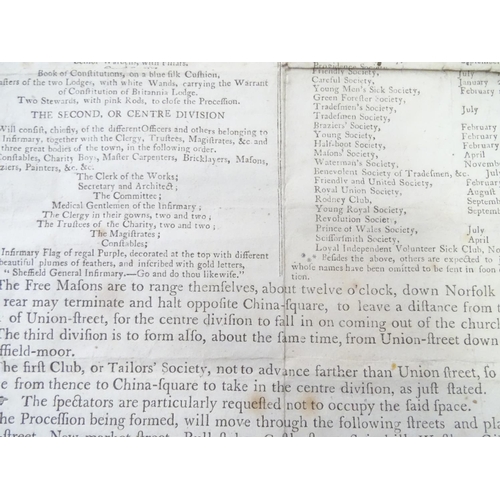 Book of Constitutions, on a blue silk Cushion,
asters of the two Lodges, with white Wands, carrying the Warrant
of Constitution of Britannia Lodge.
Two Stewards, with pink Rods, to close the Procession.
THE SECOND, OR CENTRE DIVISION
Will consist, chiefly, of the different Officers and others belonging to
Infirmary, together with the Clergy, Trustees, Magistrates, &c and
three great bodies of the town, in the following order.
Constables, Charity Boys, Master Carpenters, Bricklayers, Masons,
ziers, Painters, &c. &c.
The Clerk of the Works;
Secretary and Architect;
The Committee;
Medical Gentlemen of the Infirmary;
The Clergy in their gowns, two and two;
The Trustees of the Charity, two and two;
The Magistrates;
Constables;
Infirmary Flag of regal Purple, decorated at the top with different
beautiful plumes of feathers, and inscribed with gold letters,
"Sheffield General Infirmary.—Go and do thou likewise."
Friendly Society, July
Careful Society, January
Young Men's Sick Society, February
Green Forester Society,
Tradesmen's Society, July
Tradesmen's Society,
Braziers' Society, February
Young Society, February
Half-boot Society, February
Masons' Society, April
Waterman's Society, Novem
Benevolent Society of Tradesmen, &c.
Friendly and United Society, February
Royal Union Society, August
Rodney Club, Septem
Young Royal Society, Septem
Revolution Society,
Prince of Wales Society, July
Scissorsmith Society, April
Loyal Independent Volunteer Sick Club, No
Besides the above, others are expected to
whose names have been omitted to be sent in soon
tion.
The Free Masons are to range themselves, about twelve o'clock, down Norfolk
rear may terminate and halt opposite China-square, to leave a distance from t
of Union-street, for the centre division to fall in on coming out of the church
The third division is to form also, about the same time, from Union-street down
ffield-moor.
The first Club, or Tailors' Society, not to advance farther than Union street, so
e from thence to China-square to take in the centre division, as just stated.
The spectators are particularly requested not to occupy the said space.
he Procession being formed, will move through the following streets and pla